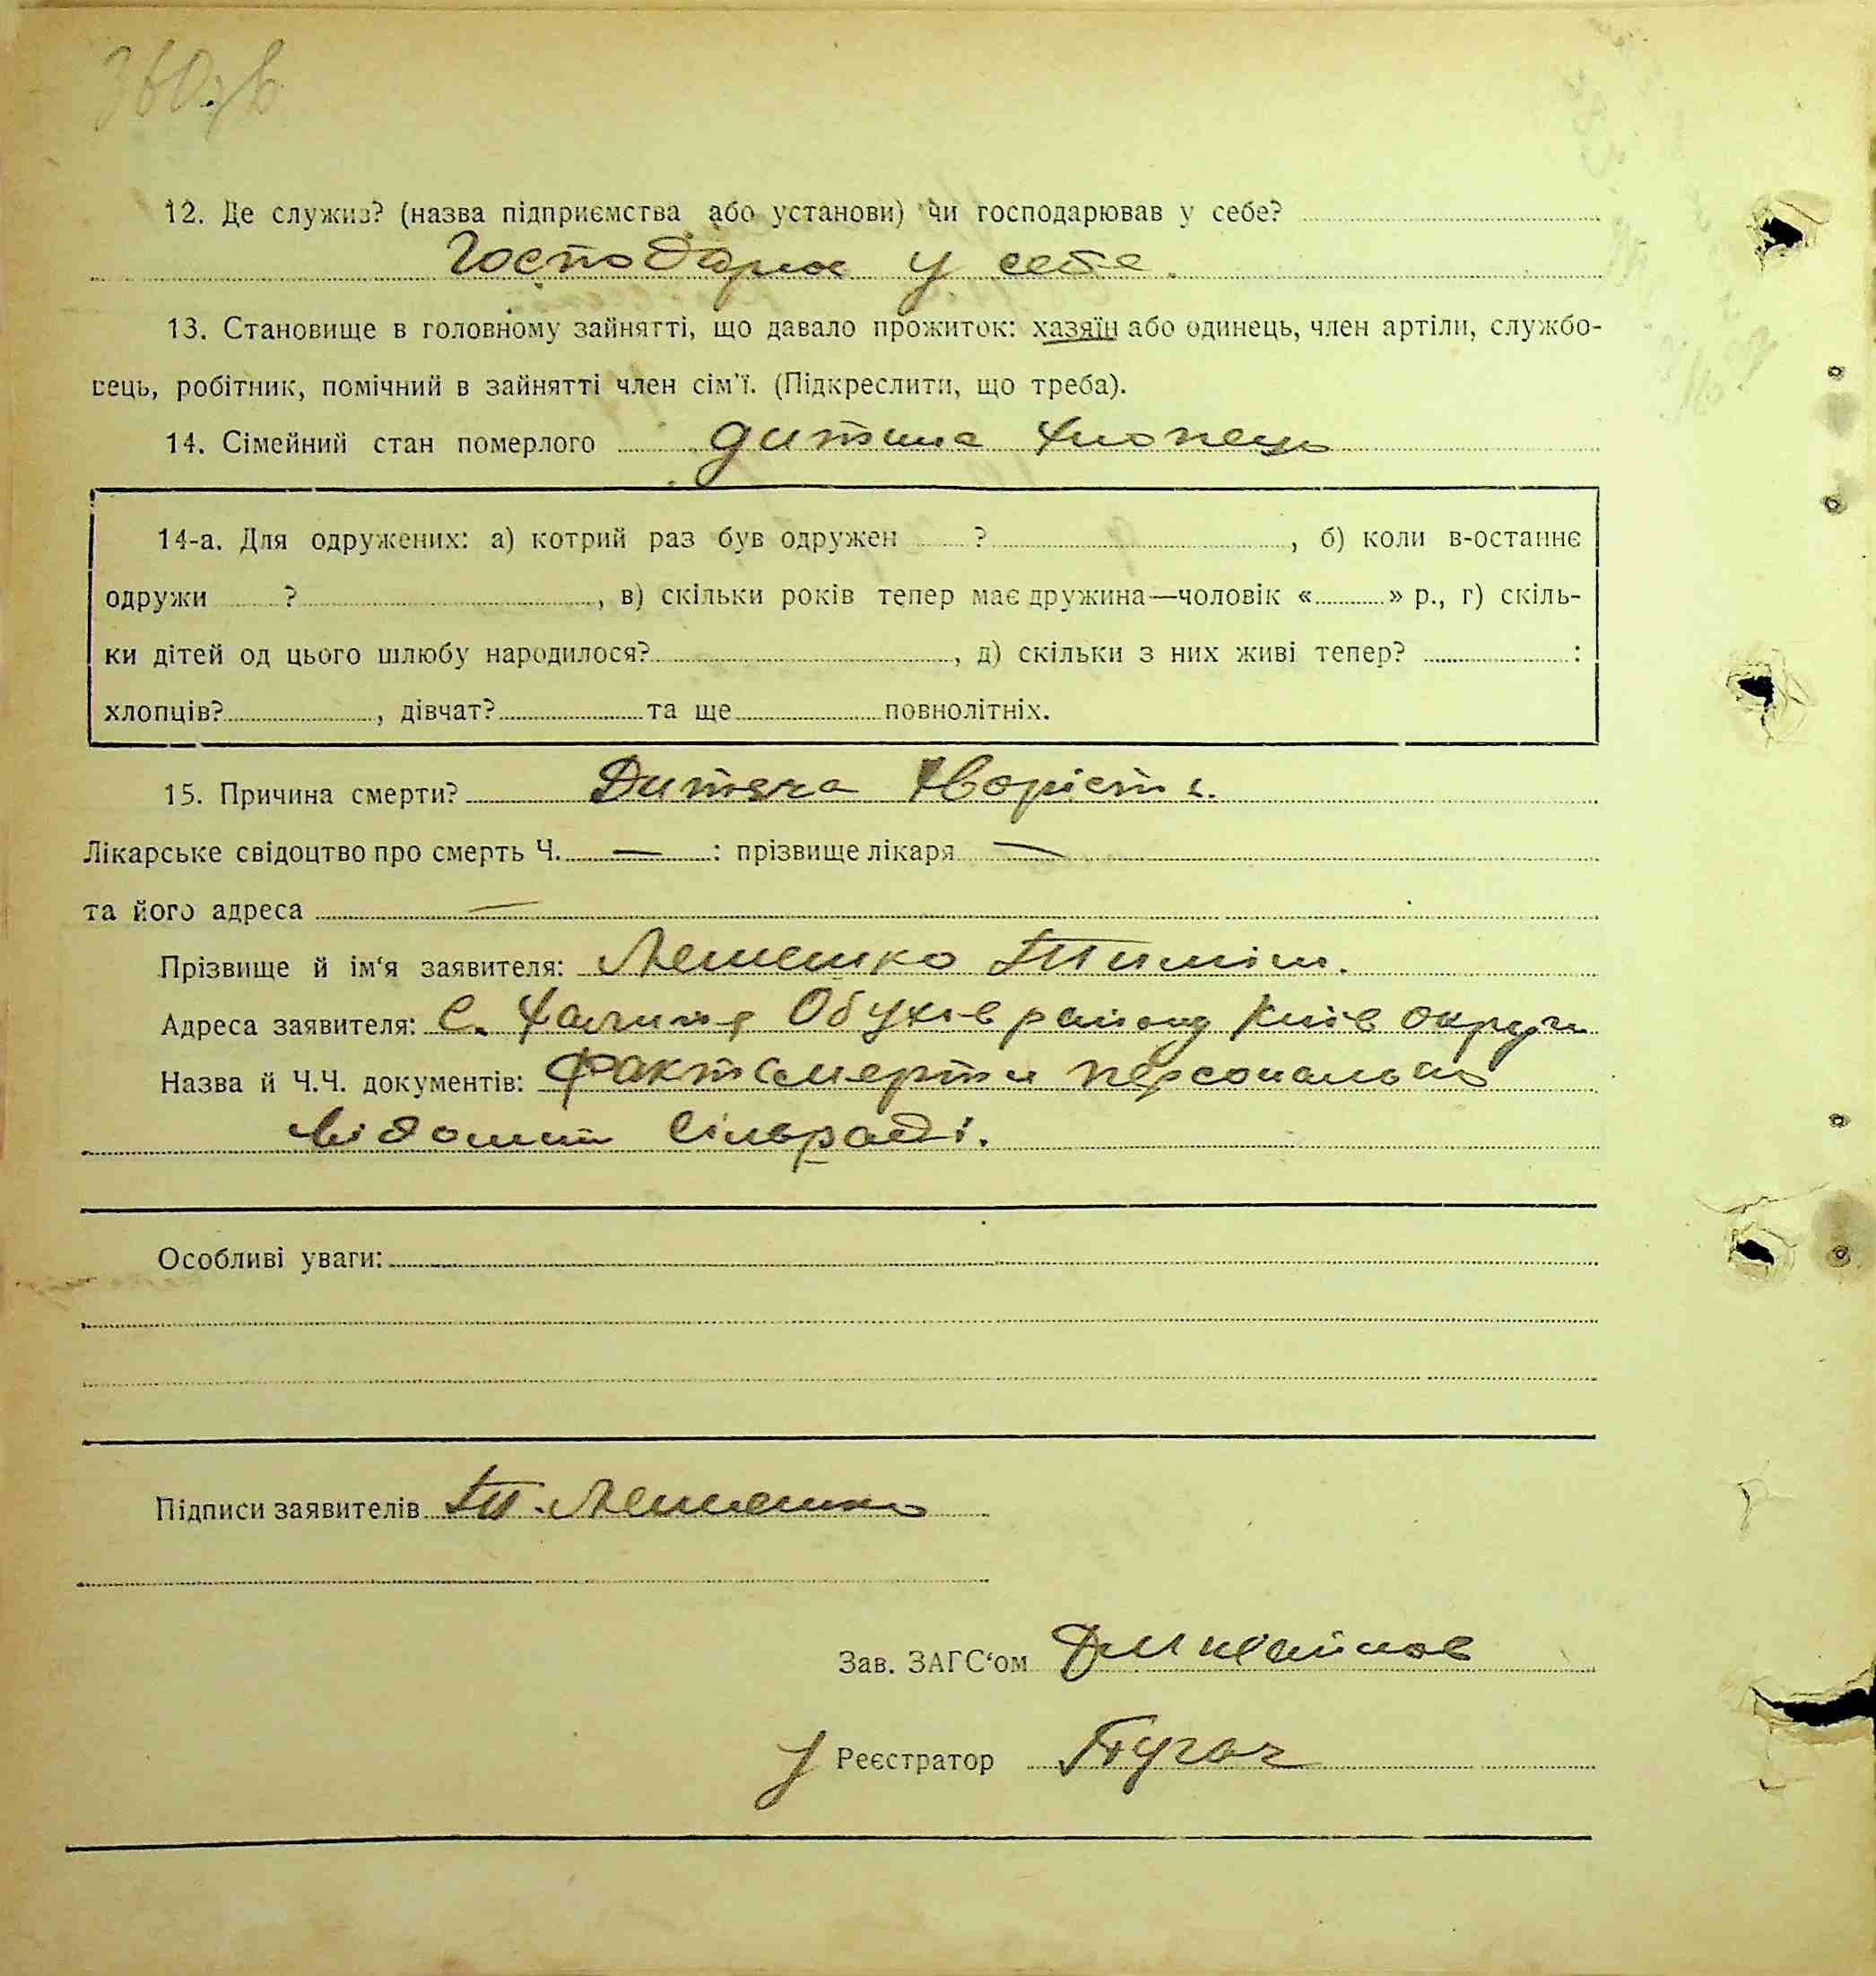 360 зв
12. Де служив? (назва підприємства або установи) чи господарював у себе?
Господарює у себе.
13. Становище в головному зайнятті, що давало прожиток: хазяїн або одинець, член артіли, службо-
вець, робітник, помічний в зайнятті член сім'ї. (Підкреслити, що треба).
14. Сімейний стан померлого дитина хлопець
14-а. Для одружених: а) котрий раз був одружен ? , б) коли в-останнє
одружи ? , в) скільки років тепер має дружина—чоловік « » р., г) скіль-
ки дітей од цього шлюбу народилося? , д) скільки з них живі тепер? :
хлопців? , дівчат? та ще повнолітніх.
15. Причина смерти? Дитяча хворість.
Лікарське свідоцтво про смерть Ч. — : прізвище лікаря —
та його адреса —
Прізвище й ім'я заявителя: Лешенко Тиміш.
Адреса заявителя: С. Халипʼя Обухів району Київ округи
Назва й Ч.Ч. документів: Факт смерти персонально
відомий Сільраді.
Особливі уваги:
Підписи заявителів Т. Лешенко
Зав. ЗАГС'ом
Реєстратор Пугач